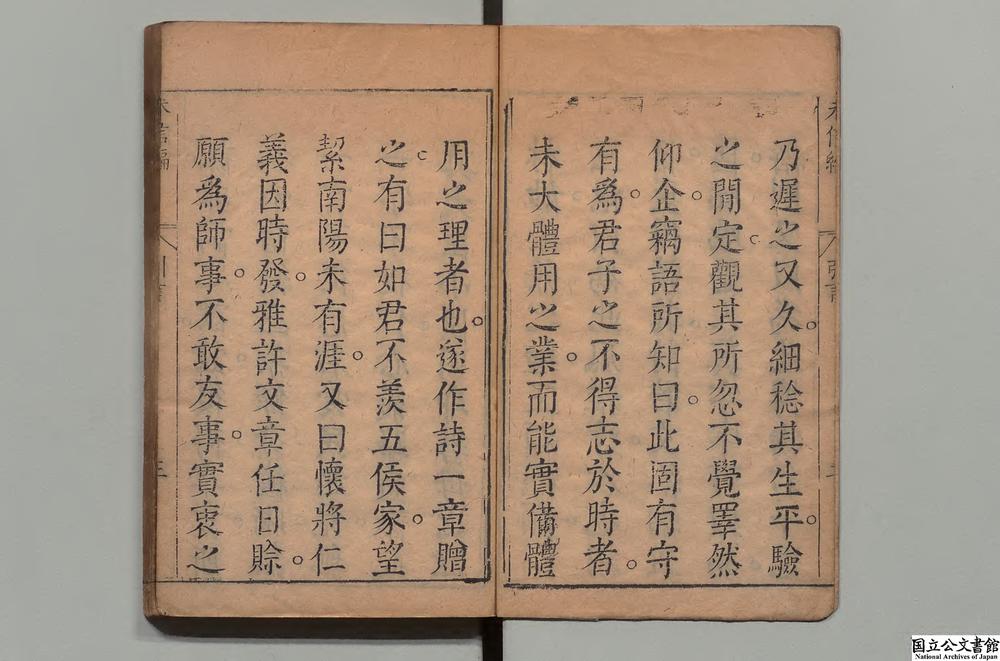 乃遲之又久。細稔其生平。驗
之閒定。觀其所忽不覺睪然
仰企。竊語所知曰。此固有守
有爲。君子之不得志於時者。
未大體用之業。而能實備體
用之理者也。遂作詩一章贈
之。有曰如君不羨五侯家。望
絜南陽未有涯。又曰懷將仁
義因時發。雅許文章任日賖。
願爲師事。不敢友事。實衷之
国立公文書館
National Archives of Japan